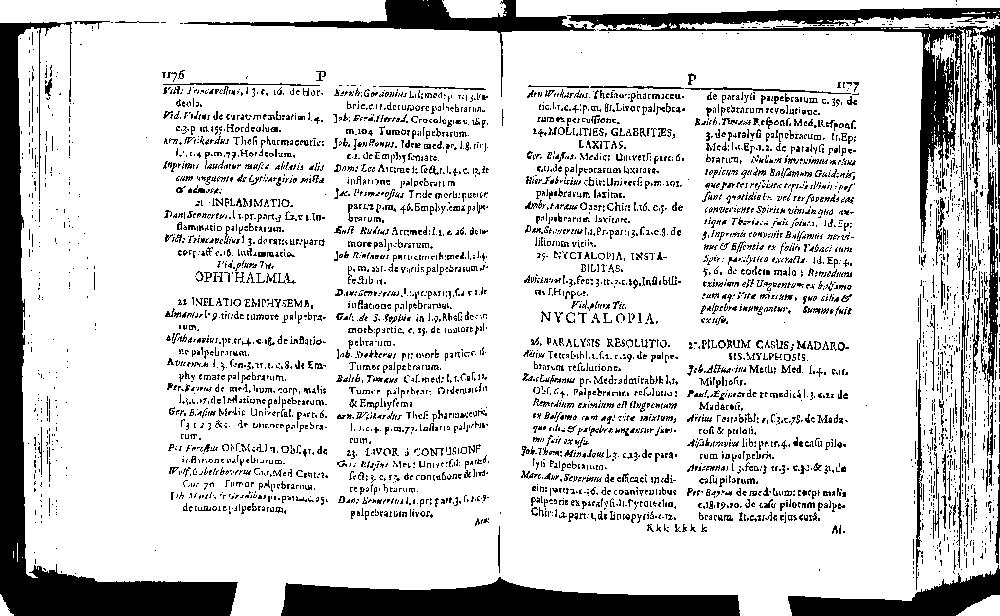 1176 P
Vict: Trincavellius, l 3. c. 16. de Hor-
deolo.
Vid. Vidius de curat: membratim l. 4.
c. 3. p m. 155. Hordeolum.
Arn. Weikardus Thes: pharmaceutic:
l. 1. c. 4 p. m. 77. Hordeolum.
Inprimis laudatur musca ablatis alis
cum unguento de Lythargirio mista
& admota.
21 INFLAMMATIO.
Dan: Sennertus, l. 1. pr. part. 3 s. 2. c 1. In-
flammatio palpebrarum.
Vict: Trincavellius l 3. de rat: cur: part:
corp: aff c. 16. Inflammatio.
Vid. plura Tit.
OPHTHALMIA.
22 INFLATIO EMPHYSEMA,
de tumore palpebra-
rum.
de inflatio-
ne palpebrarum.
Avicenna l 3. fen. 3. tr. 1. c. 8. de Em-
phymate palpebrarum.
Pet. Bayrus de med. hum. corp. malis
l. 3. c. 17. de Inflatione palpebrarum.
Ger. Blasius Medic Universal. part. 6.
de tumore palpebra-
rum.
Pet Forestus Obs. Med. l 11. Obs. 41. de
inflatione palpebrarum.
Wolf. Gabelchoverus Cur. Med Cent: 2.
Cur 70 Tumor palpebrarum.
de tumore palpebrarum.
Bernh: Gordonius Lil: med: p. 1: 3. Ru-
bric. c. 11. de tumore palpebrarum.
Joh. Ferd. Herrod. Crocolog: c. 1. 8 p.
m. 104 Tumor palpebrarum.
Joh. Jonstonus. Idea med. pr. l. 8. tit 3.
c. 2. de Emphysemate.
Dom: Leo Art: med: sect. 1. l. 4. c. 13. de
inflatione palpebrarum
Jac. Primerosius
part: 2 p. m. 46. Emphysema palpe-
brarum.
Eust Rudius Art: med: l. 1. c. 26. de tu-
more palpebrarum.
Joh Riolanus part: c: meth: med: l. 1: l 4.
p. m. 221. de variis palpebrarum af-
fectibus.
Dan: Sennertus, l. 1. pr: part: 3. s. 2 c 1. de
inflatione palpebrarum.
Gal: de S. Sophia in l. 9. Rhasi de cur:
morb: partic. c. 23. de tumore pal-
pebrarum.
Joh. Stokkerus pr: morb particul:
Tumor palpebrarum.
Balth. Timaeus Cas. med: l. 1. Cas. 12.
Tumor palpebrar: Oedematosus
& Emphysema
Arn. Weikardus Thes: pharmaceutic:
l. 1. c. 4. p. m. 77. Inflatio palpebra-
rum.
23. LIVOR à CONTUSIONE
Ger: Blasius Med: Universal: part: 6.
sect: 3. c, 13. de contusione & livo-
re palpebrarum.
Dan: Sennertus l. 1. pr: part: 3. s. 2. c 9.
palpebrarum livor.
Arn:
P 1177
Arn Weikardus. Thesaur: pharmaceu-
tic. l. 1. c. 4: p. m. 81. Livor palpebra-
rum ex percussione.
24. MOLLITIES, GLABRITIES,
LAXITAS.
Ger. Blasius. Medic: Universi part: 6.
c. 11. de palpebrarum laxitate.
Hier. Fabricius chir: Universi p. m. 101.
palpebrarum laxitas.
Ambr. Paraeus Oper: Chir: l. 16. c. 5. de
palpebrarum laxitate.
Dan. Sennertus l. 1. Pr: part: 3. s: 2. c. 8. de
situum vitiis.
25. NYCTALOPIA, INSTA-
BILITAS.
Avicenna l. 3. fen: 3 tr. 2. c. 19. Instabili-
tas s. Hippos.
Vid. plura Tit.
NYCTALOPIA.
26. PARALYSIS RESOLUTIO.
Aetius Tetrabibl. 2. s: 2. c. 29. de palpe-
brarum resolutione.
Zac: Lusitanus pr. Med: admirab: l. 1.
Obs. 64. Palpebrarum resolutio:
Remedium eximium est Unguentum
ex Balsamo cum aq: vitae mixtum,
quo cilia & palpebrae unguntur sum-
mo fuit ex usu.
Joh. Thom: Minadous l. 3. c. 23. de para-
lysi Palpebrarum.
Marc. Aur. Severinus de efficaci medi-
cin: part: 2. c. 26. de coniventibus
palpebris ex paralysi. It. Pyrotechn.
Chir: l. 2. part: 1. de Entropyris. c. 12.
de paralysi palpebrarum c. 39. de
palpebrarum revolutione.
Balth. Timaeus Respons. Med. Respons.
3. de paralysi palpebrarum. It. Ep:
Med: l: 1. Ep. 1. 2. de paralysi palpe-
brarum. Nullum invenimus melius
topicum quàm Balsamum Guidonis,
que partes resolutae tepide illini: pos-
sunt quotidie bis vel ter fovendo eas
conveniente Spiritu vini in quo an-
tiqua Theriaca fuit soluta. Id. Ep:
3. Inprimis convenit Balsamus nervi-
nus & Essentia ex foliis Tabaci cum
Spir: paralytico extracta. Id. Ep: 4.
5. 6. de eodem malo: Remedium
eximium est Unguentum ex balsamo
cum aq: Vitae mixtum, quo cilia &
palpebrae inunguntur. Summo fuit
ex usu.
27. PILORUM CASUS, MADARO-
SIS. MYLPHOSIS.
Joh. Actuarius Meth: Med. l. 4. cur.
Milphosis.
Paul. Aegineta de re medica l. 3. c. 22 de
Madarosi.
Aetius Tetrabibl: 2. s. 3. c. 78. de Mada-
rosi & ptilosi.
Alsaharavius lib: pr: tr. 4. de casu pilo-
rum in palpebris.
Avicenna l 3. fen: 3 tr. 3. c. 30. & 31. de
casu pilorum.
Pet: Bayrus de med: hum: corp: malis
c. 18. 19. 20. de casu pilorum palpe-
brarum. It. c. 21. de ejus cura.
Kkk kkk k
Al.